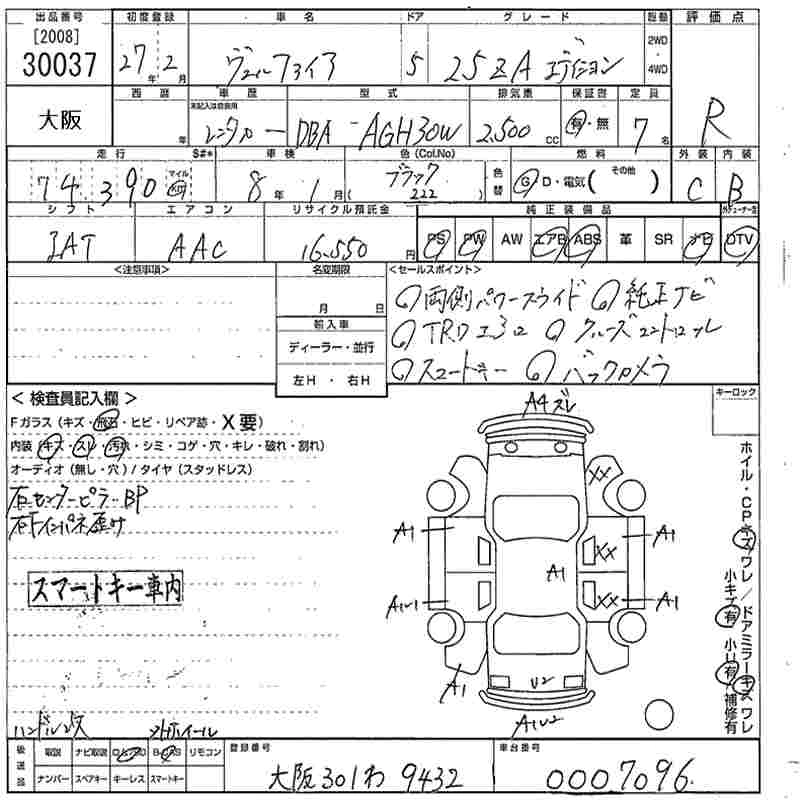 出品番号 初度登録 車名 ドア グレード 駆動 評価点
[2008]
30037 27年2月 ヴェルファイア 5 25ZA エディション 2WD・4WD R
大阪 西暦 年 車歴 型式 排気量 保証書 定員
未記入は自家用
レンタカー DBA-AGH30W 2,500cc 有・無 7名
走行 S#* 車検 色(Col.No) 色替 燃料 外装 内装
74,390 マイル km 8年1月 ブラック (222) G・D・電気(その他) C B
シフト エアコン リサイクル預託金 純正装備品
IAT AAC 16,550円 PS PW AW エアB ABS 革 SR ナビ DTV
<注意事項> 名変期限 <セールスポイント>
月 日 両側パワースライド 純正ナビ
輸入車 TRDエアロ クルーズコントロール
ディーラー・並行 スマートキー バックカメラ
左H・右H
<検査員記入欄> キーロック
Fガラス(キズ・飛石・ヒビ・リペア跡・X要)
内装(キズ・スレ・汚れ・シミ・コゲ・穴・キレ・破れ・割れ)
オーディオ(無し・穴)/タイヤ(スタッドレス)
右センターピラーBP
右下インパネ歪み
スマートキー車内
A4ズレ
XX
A1 XX A1
A1
A1U1 XX A1
A1 U2
A1U2
ホイル・CPキズワレ/ドアミラーキズワレ
小キズ有 小U有 補修有
ハンドルスレ
後送品 取説 ナビ取説 リモコン 登録番号 車台番号
ナンバー スペアキー キーレス スマートキー 大阪 301 わ 9432 0007096